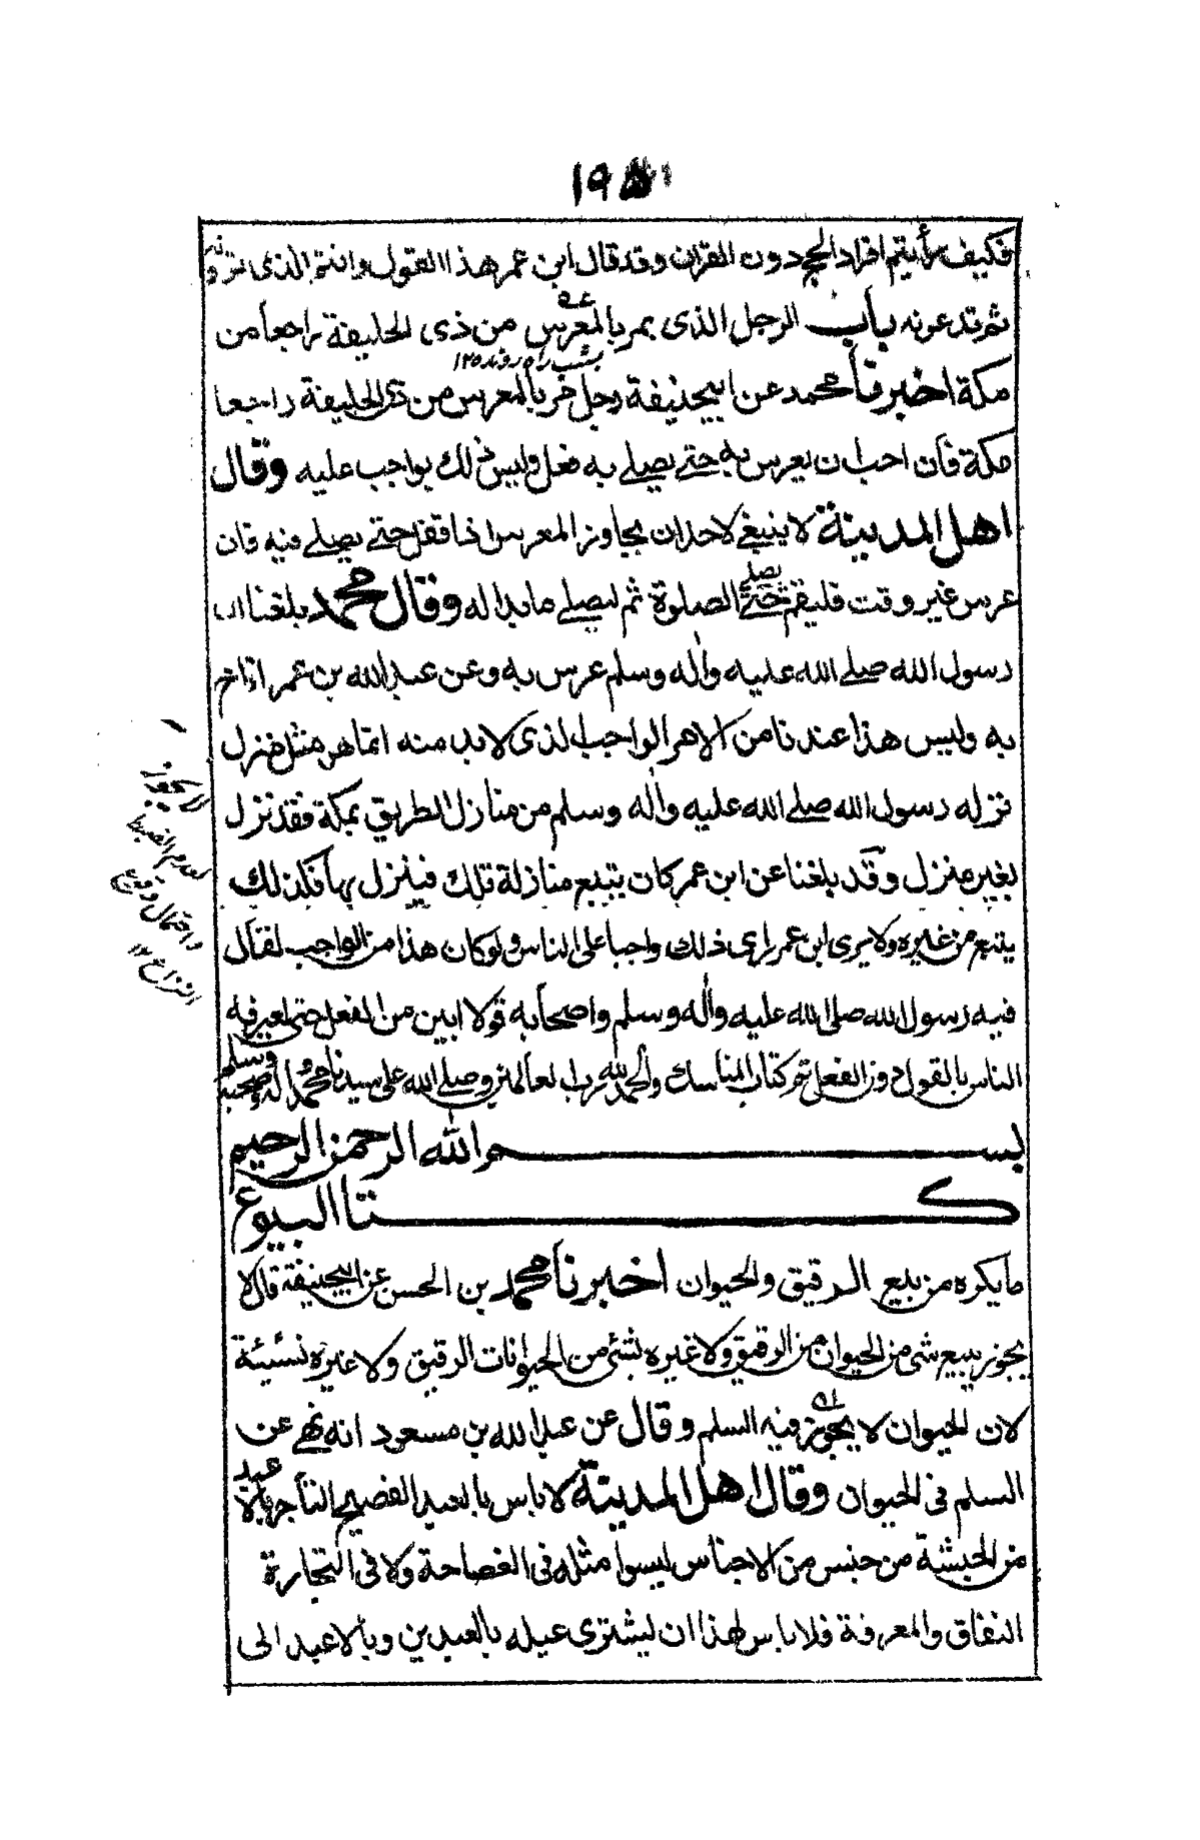 فكيف رأيتم افراد الحج دون القران وقد قال ابن عمر هذا القول وانتم الذى تروونه
ثم تدعونه باب الرجل الذى يمر بالمعرس من ذى الحليفة راجعا من
مكة اخبرنا محمد عن ابيحنيفة رجل مر بالمعرس من ذى الحليفة راجعا
مكة فان احب ان يعرس به حتے يصلے به فعل وليس ذلك بواجب عليه وقال
اهل المدينة لا ينبغے لاحد ان يجاوز المعرس اذا قفل حتے يصلے فيه فان
عرس غير وقت فليقم حتے يصلے الصلوة ثم ليصلے ما بدا له وقال محمد بلغنا ان
رسول الله صلے الله عليه واٰله وسلم عرس به وعن عبد الله بن عمر اناخ
به وليس هذا عندنا من الامر الواجب الذى لابد منه انما هو مثل منزل
نزله رسول الله صلے الله عليه واٰله وسلم من منازل الطريق بمكة فقد نزل
بغير منزل وقد بلغنا عن ابن عمر كان يتبع منازلة تلك فينزل بها فكذلك
يتبع من غيره ولا يرى ابن عمر راى ذلك واجبا على الناس ولو كان هذا من الواجب لقال
فيه رسول الله صلى الله عليه واٰله وسلم واصحابه قولا ابين من الفعل حتى يعرفه
الناس بالقول دون الفعل تم كتاب المناسك والحمد لله رب العالمين وصلے الله على سيدنا محمد واله وصحبه وسلم
بسم الله الرحمن الرحيم
كتاب البيوع
ما يكره من بيع الرقيق والحيوان اخبرنا محمد بن الحسن عن ابيحنيفة قال لا
يجوز بيع شى من الحيوان من الرقيق ولا غيره بشئ من الحيوانات الرقيق ولا غيره نسئية
لان الحيوان لا يجوز فيه السلم وقال عن عبد الله بن مسعود انه نهے عن
السلم فى الحيوان وقال اهل المدينة لا باس بالعبد الفصيح التاجر بالاعبد
من الحبشة من جنس من الاجناس ليسوا مثله فى الفصاحة ولا فى التجارة
النفاق والمعرفة فلا باس لهذا ان يشترى عبده بالعبدين وبالاعبد الى
لا يجوز
لعدم الضبط
واحتمال وقوع
النزاع ١٢